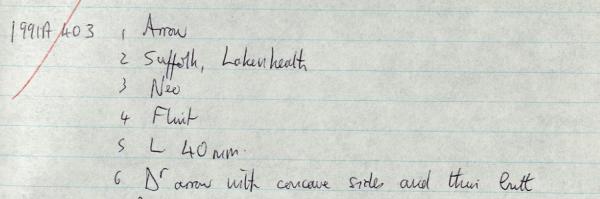 1991A 403 1 Arrow
2 Suffolk, Lakenheath
3 Neo
4 Flint
5 L 40mm.
6 Dr arrow with concave sides and thin butt